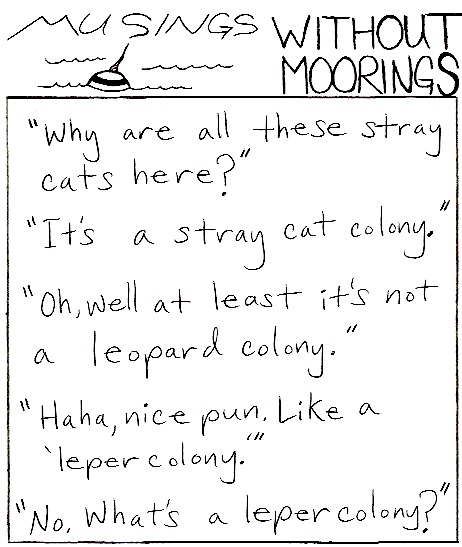 MUSINGS WITHOUT
MOORINGS
"Why are all these stray
cats here?"
"It's a stray cat colony."
"Oh, well at least it's not
a leopard colony."
"Haha, nice pun. Like a
'leper colony.'"
"No. What's a leper colony?"